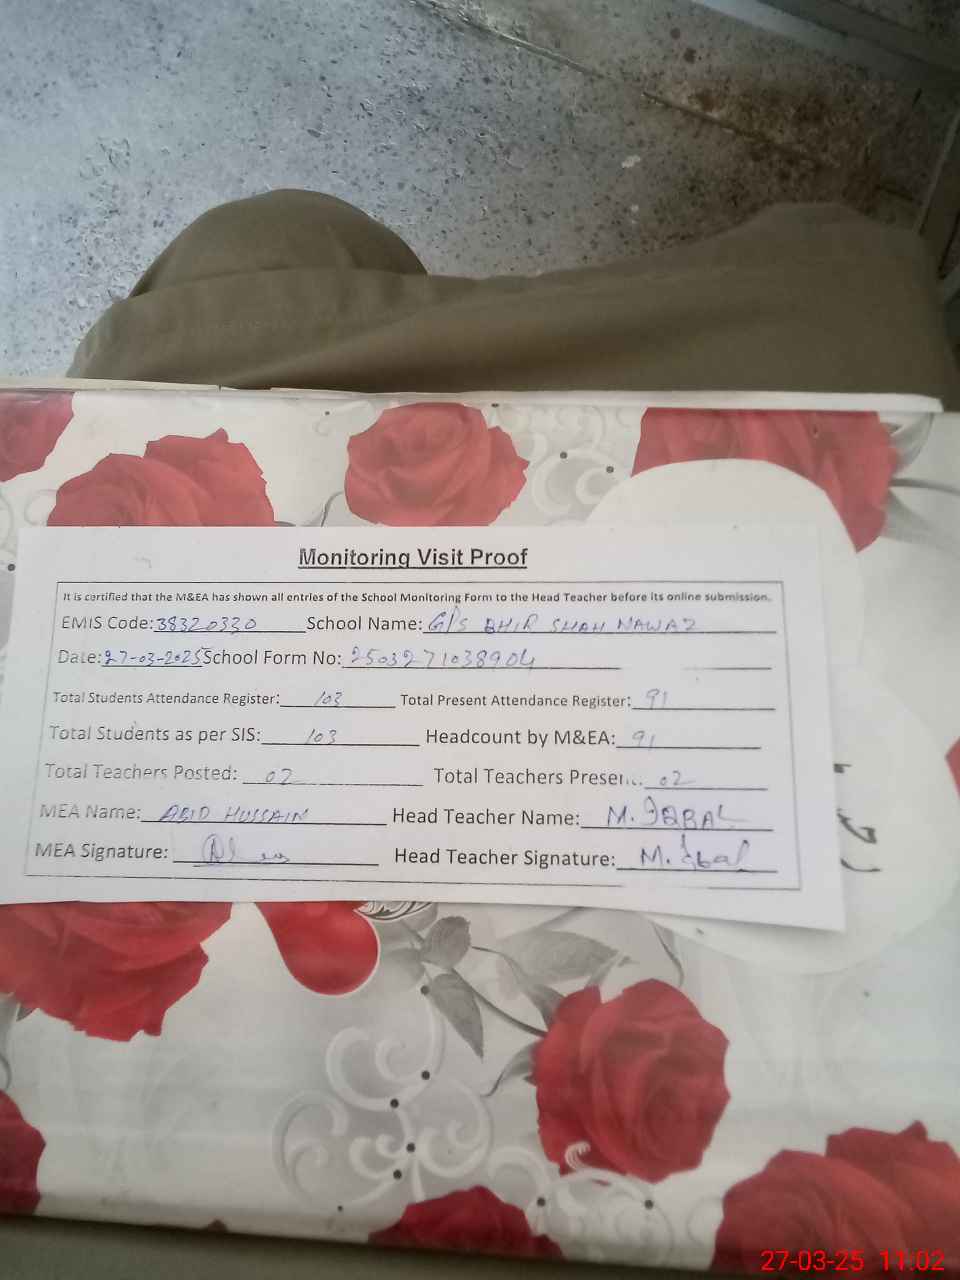 Monitoring Visit Proof
It is certified that the M&EA has shown all entries of the School Monitoring Form to the Head Teacher before its online submission.
EMIS Code: 38320330 School Name: GPS BHIR SHAH NAWAZ
Date: 27-03-2025 School Form No: 2503271038904
Total Students Attendance Register: 103 Total Present Attendance Register: 91
Total Students as per SIS: 103 Headcount by M&EA: 91
Total Teachers Posted: 02 Total Teachers Present: 02
MEA Name: ABID HUSSAIN Head Teacher Name: M. IQBAL
MEA Signature: Head Teacher Signature: M. Iqbal
27-03-25 11:02